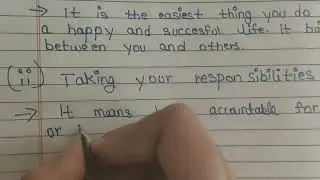 → It is the easiest thing you do
a happy and succesful life. It bui
between you and others.
(iii) Taking your responsibilities
→ It means accountable for
or